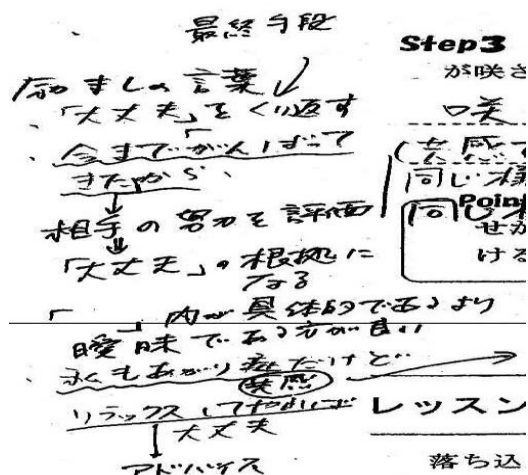 最終手段
励ましの言葉
・「大丈夫」をくり返す
・「今までがんばって
きたから、
相手の努力を評価
「大丈夫」の根拠に
なる
「 」内が具体的であるより
曖昧である方が良い
・私もあがり症だけど…
共感
リラックスしてやれば
大丈夫
アドバイス
Step3
が咲き
咲
(共感
同じ
Point
せか
ける
レッスン
落ち込